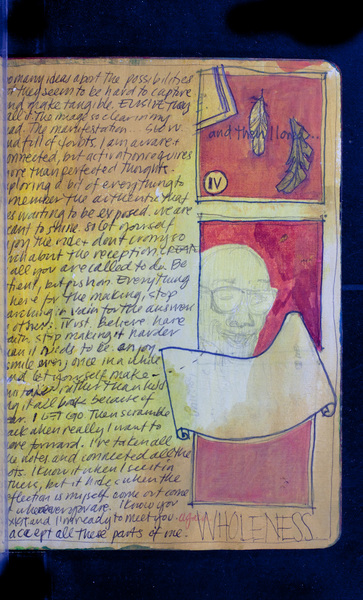 so many ideas about the possibilities
they seem to be hard to capture
and make tangible. ELUSIVE they
all. The image so clear in my
head. The manifestation... slow
and full of doubts. I am aware &
connected, but activation requires
more than perfected thoughts.
exploring a bit of everything to
remember the authentic that
is waiting to be exposed. we are
meant to shine. so let yourself
enjoy the ride & don't worry so
much about the reception.
all you are called to do. Be
patient, but push on. Everything
here for the making, stop
searching in vain for the answer
others. Trust. Believe have
faith stop making it harder
than it needs to be. enjoy
smile every once in a while
and let yourself make
mistakes, rather than
ing it all because of
fear. I LET GO Then scramble
back when really I want to
move forward. I've taken all
the notes and connected all the
dots. I know it when I see it in
others, but it hides when the
reflection is myself come out come
out wherever you are. I know you
exist and I'm ready to meet you
accept all these parts of me.
and then I long...
IV
WHOLENESS